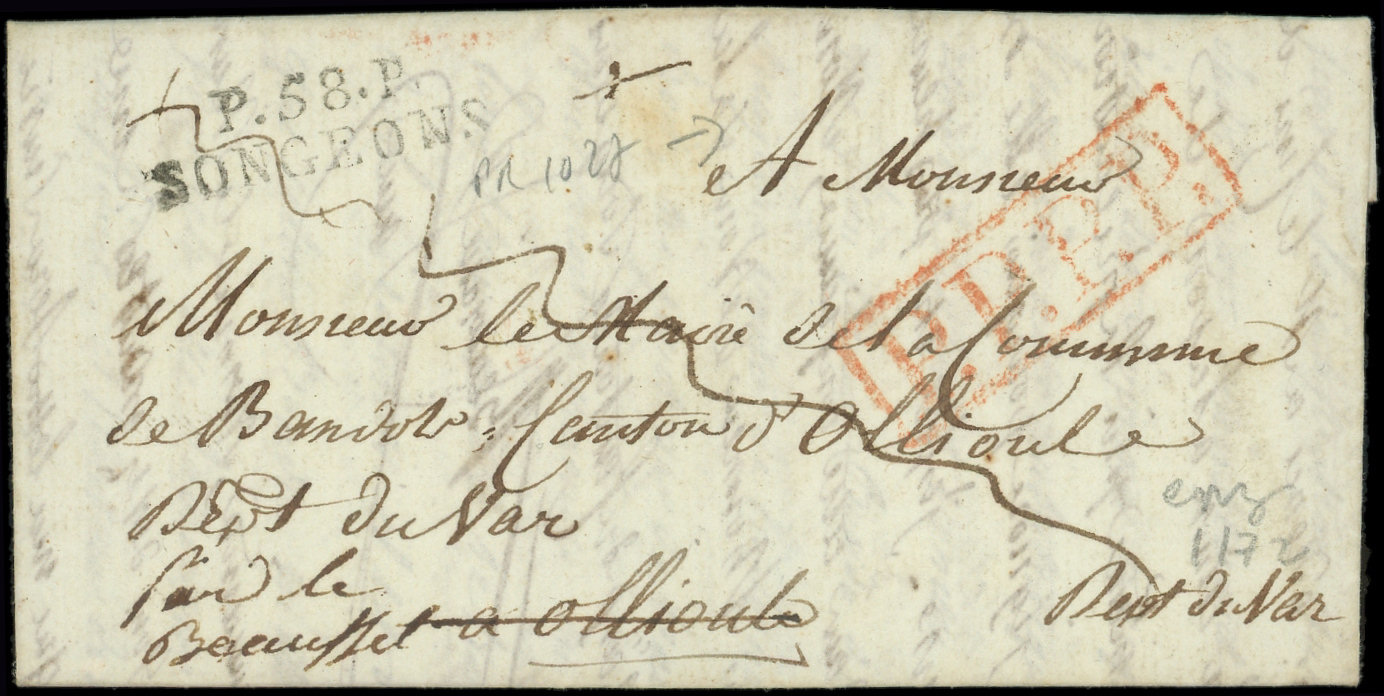 P.58.P.
SONGEONS
PR 1028
A Monsieur
P.P.P.P.
Monsieur le Maire de la Commune
de Bandol, Canton d'Ollioule
Dept du Var
par le
Beausset a Ollioule
1172
Dept du Var